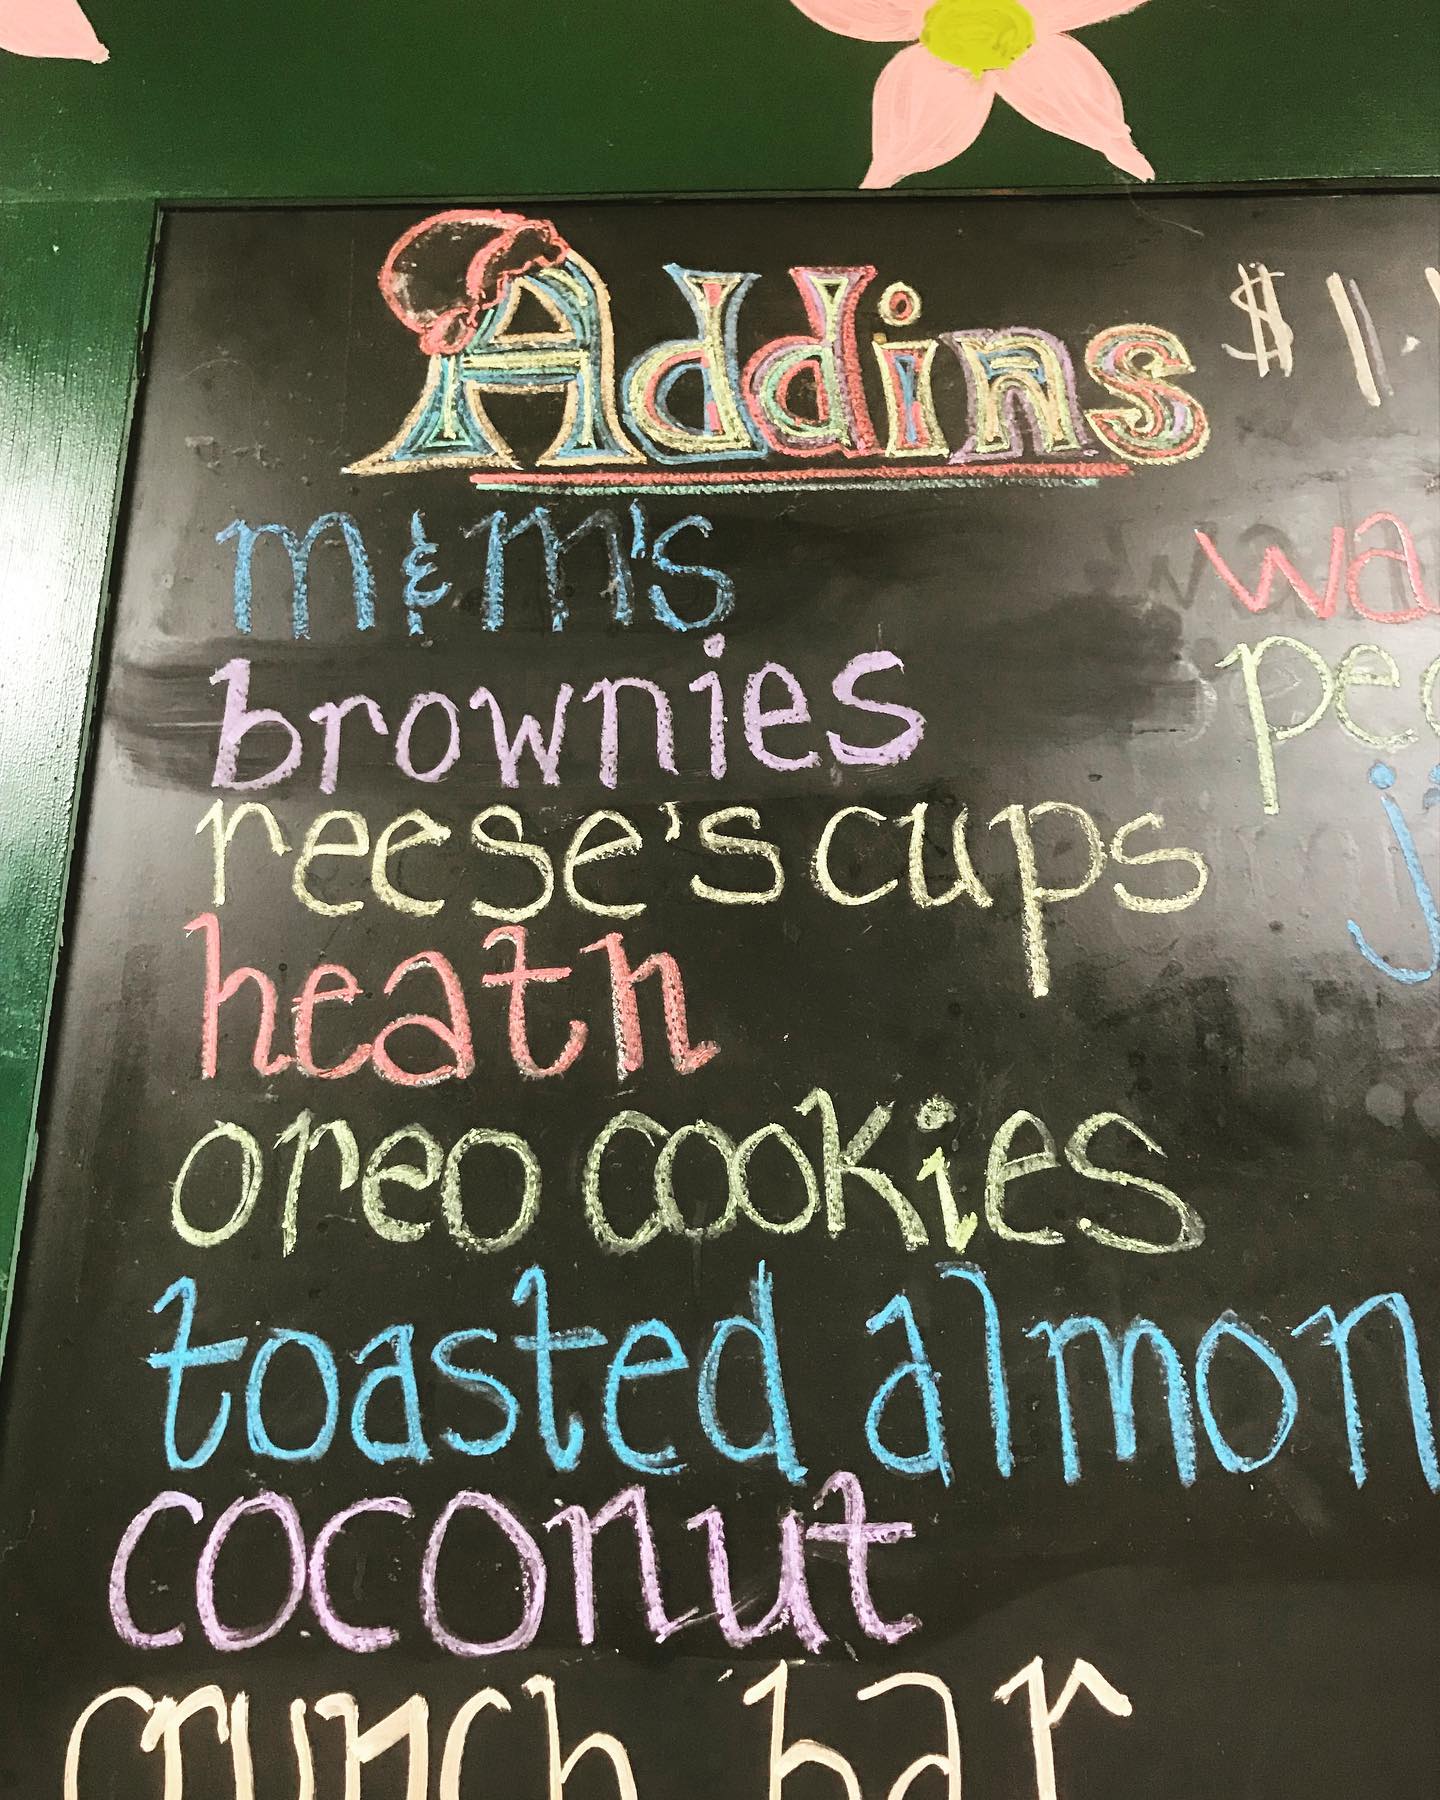 Addins $1.
m&m's
brownies
reese's cups
heath
oreo cookies
toasted almon
coconut
crunch bar
wa
pec